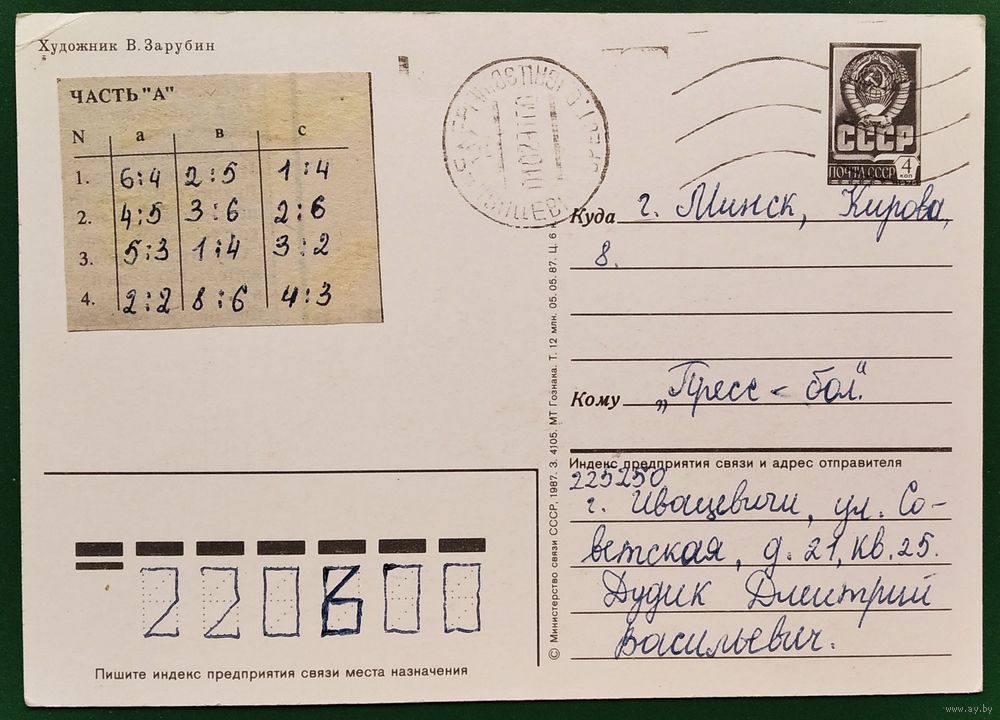 Художник В. Зарубин
ЧАСТЬ "А"
N а в с
1. 6:4 2:5 1:4
2. 4:5 3:6 2:6
3. 5:3 1:4 3:2
4. 2:2 8:6 4:3
СССР
4 коп
ПОЧТА СССР
Куда г. Минск, Кирова,
8.
Кому „Пресс-бол“
Индекс предприятия связи и адрес отправителя
225250
г. Ивацевичи, ул. Со-
ветская, д. 21, кв. 25.
Дудик Дмитрий
Васильевич.
© Министерство связи СССР, 1987. З. 4105. МТ Гознака. Т. 12 млн. 05. 05. 87. Ц. 6 к
Пишите индекс предприятия связи места назначения
www.ay.by